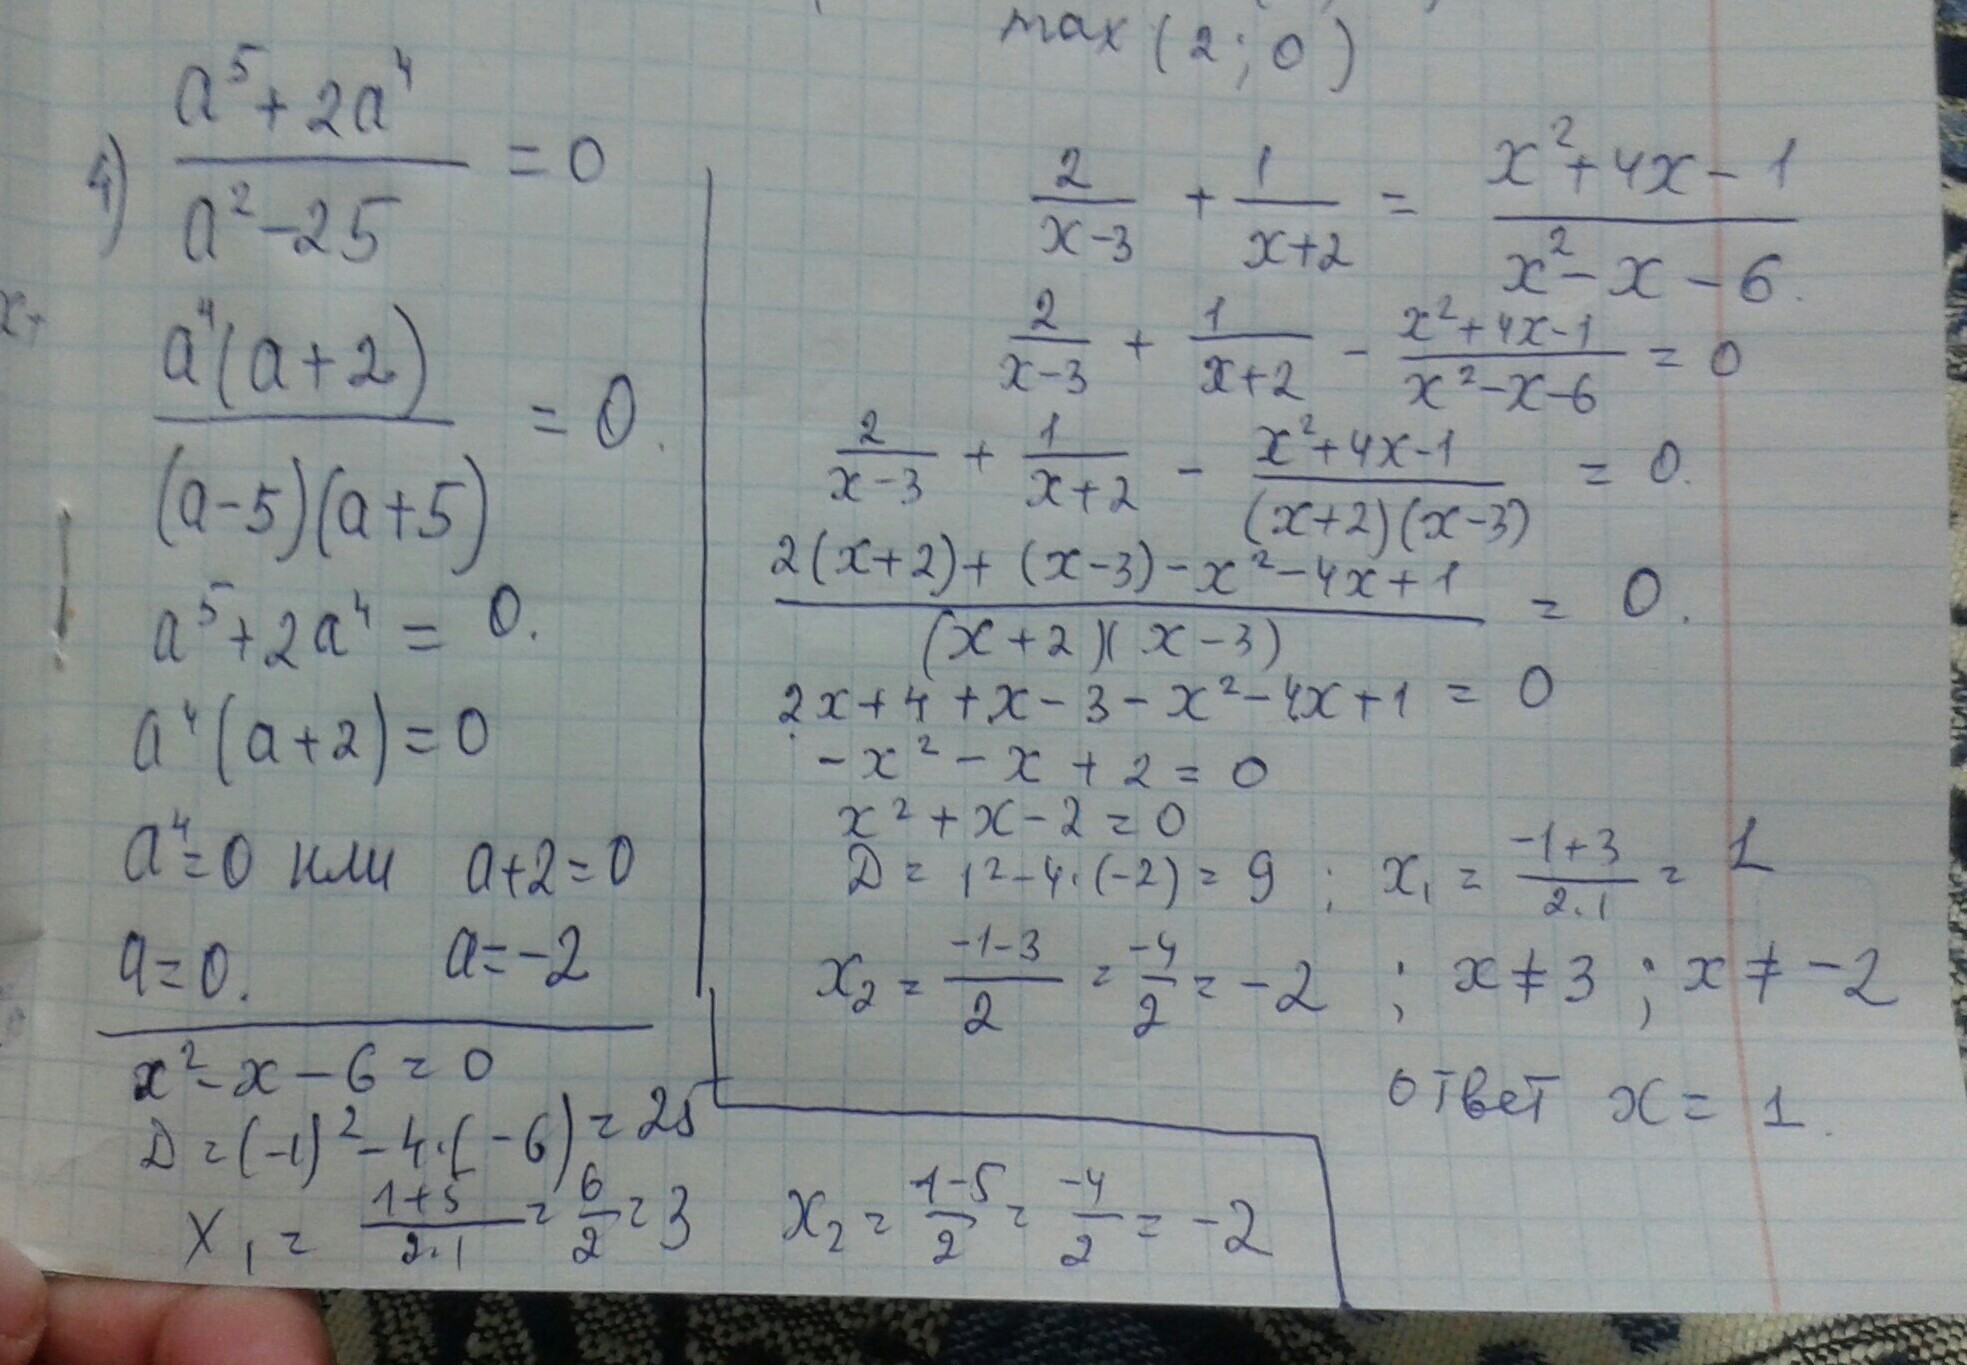 max (2; 0)
4) (a⁵ + 2a⁴)/(a² - 25) = 0
(a⁴(a + 2))/((a - 5)(a + 5)) = 0.
a⁵ + 2a⁴ = 0.
a⁴(a + 2) = 0
a⁴ = 0 или a + 2 = 0
a = 0. a = -2
x² - x - 6 = 0
D = (-1)² - 4·(-6) = 25
x₁ = (1 + 5)/(2·1) = 6/2 = 3 x₂ = (1 - 5)/2 = -4/2 = -2
2/(x - 3) + 1/(x + 2) = (x² + 4x - 1)/(x² - x - 6).
2/(x - 3) + 1/(x + 2) - (x² + 4x - 1)/(x² - x - 6) = 0
2/(x - 3) + 1/(x + 2) - (x² + 4x - 1)/((x + 2)(x - 3)) = 0.
(2(x + 2) + (x - 3) - x² - 4x + 1)/((x + 2)(x - 3)) = 0.
2x + 4 + x - 3 - x² - 4x + 1 = 0
-x² - x + 2 = 0
x² + x - 2 = 0
D = 1² - 4·(-2) = 9 ; x₁ = (-1 + 3)/(2·1) = 1
x₂ = (-1 - 3)/2 = -4/2 = -2 ; x ≠ 3 ; x ≠ -2
ответ x = 1.